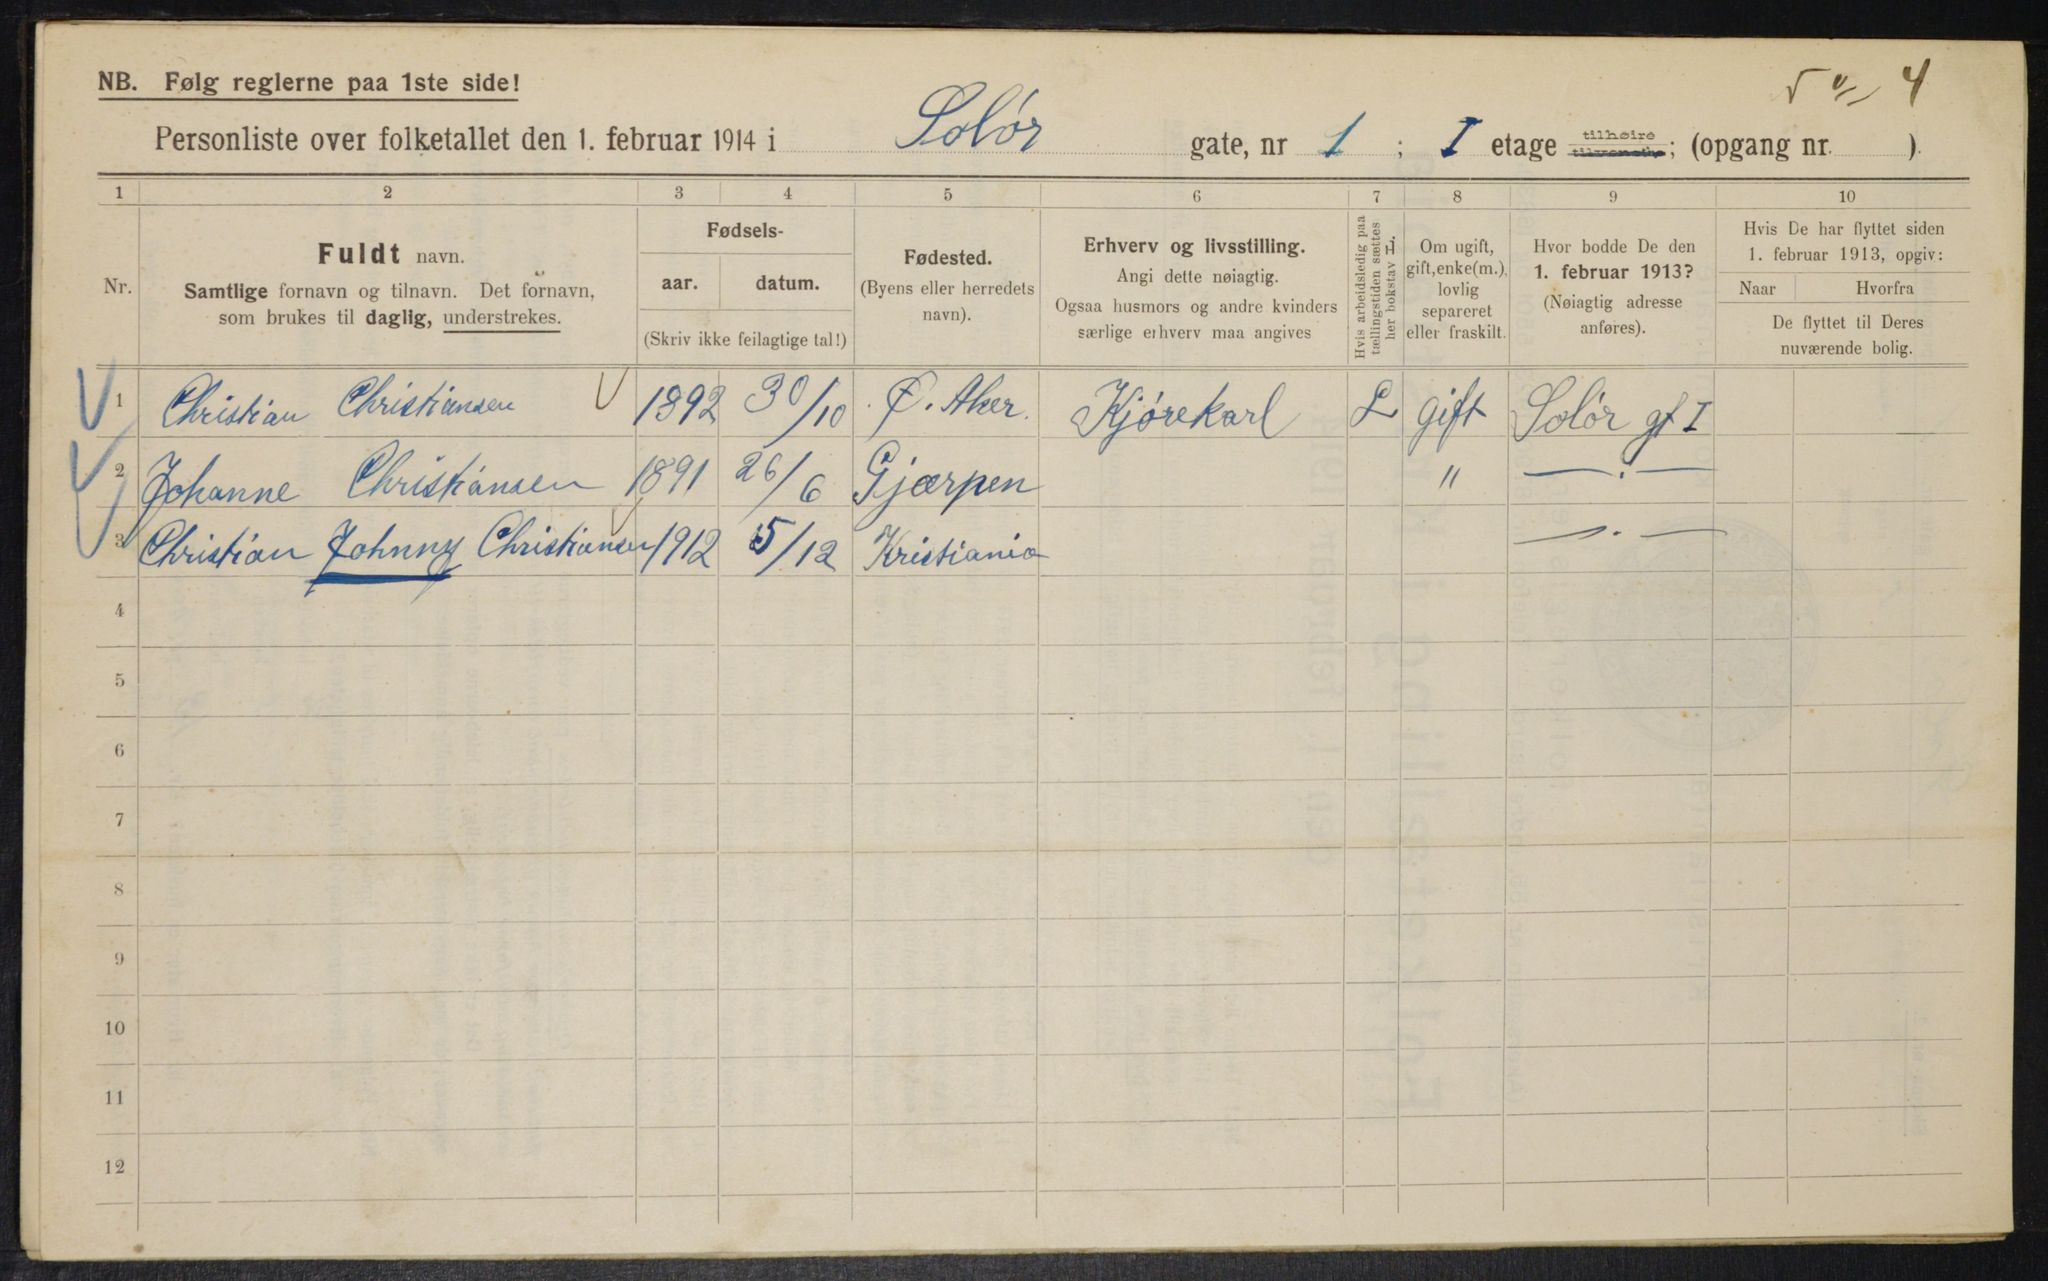 NB. Følg reglerne paa 1ste side!
4
Personliste over folketallet den 1. februar 1914 i Solør gate, nr 1 ; I etage tilhøire ; (opgang nr. ).
1 2 3 4 5 6 7 8 9 10
Nr.
Fuldt navn.
Samtlige fornavn og tilnavn. Det fornavn,
som brukes til daglig, understrekes.
Fødsels-
aar. datum.
(Skriv ikke feilagtige tal!)
Fødested.
(Byens eller herredets
navn).
Erhverv og livsstilling.
Angi dette nøiagtig.
Ogsaa husmors og andre kvinders
særlige erhverv maa angives
Hvis arbeidsledig paa
tællingstiden sættes
her bokstav L.
Om ugift,
gift, enke(m.),
lovlig
separeret
eller fraskilt.
Hvor bodde De den
1. februar 1913?
(Nøiagtig adresse
anføres).
Hvis De har flyttet siden
1. februar 1913, opgiv:
Naar Hvorfra
De flyttet til Deres
nuværende bolig.
1 Christian Christiansen 1892 30/10 Ø. Aker. Kjørekarl L gift Solør gt I
2 Johanne Christiansen 1891 26/6 Gjærpen " —.—
3 Christian Johnny Christiansen 1912 5/12 Kristiania —.—
4
5
6
7
8
9
10
11
12